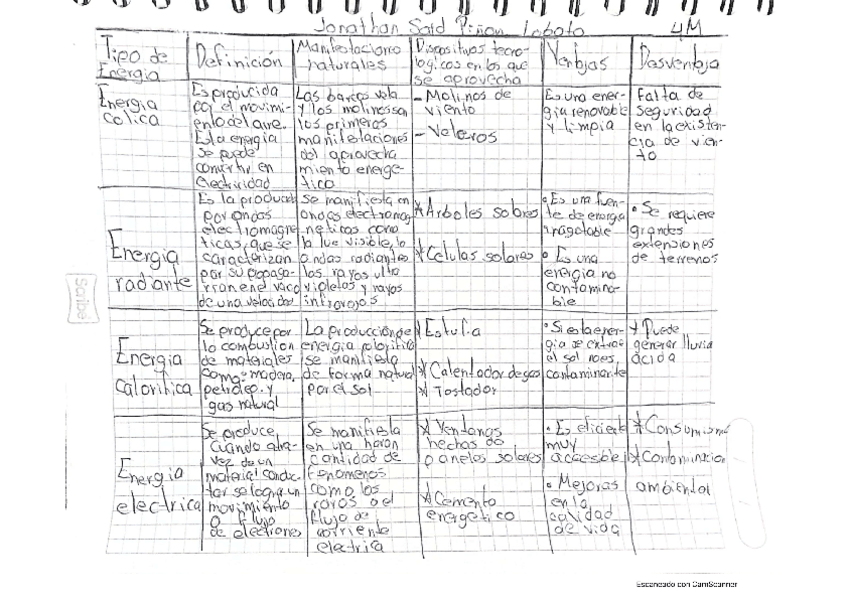 Jonathan Said Piñon Lobato 4M
Tipo de
Energia
Definición
Manifestaciones
naturales
Dispositivos tecno-
logicos en los que
se aprovecha
Ventajas
Desventaja
Energia
eolica
Es producida
por el movimi-
ento del aire.
Esta energia
se puede
convertir en
electricidad
Las barcas vela
y los molinos son
los primeros
manifestaciones
del aprovecha
miento energe-
tico
- Molinos de
viento
- Veleros
Es una ener-
gia renovable
y limpia
Falta de
seguridad
en la existen-
cia de vien-
to
Energia
radiante
Es la producida
por ondas
electromagne
ticas, que se
caracterizan
por su propaga-
rion en el vacio
de una velocidad
se manifiesta en
ondas electromag
neticas como
la luz visible, lo
ondas radiantes
los rayos ultra
violetas y rayos
infrarojos
* Arboles solares
* Celulas solares
• Es una fuen-
te de energia
inagotable
• Es una
energia no
contamina-
ble
• Se requiere
grandes
extensiones
de terrenos
Energia
calorifica
Se produce por
la combustion
de materiales
como: madera,
petroleo y
gas natural
La produccion de
energia calorifica
se manifiesta
de forma natural
por el sol
* Estufa
* Calentador de gas
* Tostador
• Si esta ener-
gia se extrae
el sol no es
contaminante
* Puede
generar lluvia
acida
Energia
electrica
Se produce
cuando atra-
vez de un
material conduc
tor se logra un
movimiento
o flujo
de electrones
Se manifiesta
en una
cantidad de
fenomenos
como los
rayos o el
flujo de
corriente
electrica
* Ventanas
hechas de
panelos solares
* Cemento
energetico
• Es eficiente
muy
accesible
• Mejoras
en la
calidad
de vida
* Consumismo
* Contaminacion
ambiental
Scribe
Escaneado con CamScanner